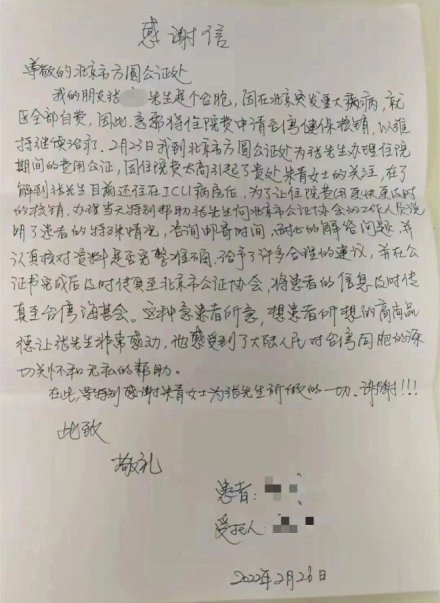 感谢信
尊敬的北京市方圆公证处
我的朋友张 先生是个台胞,因在北京突发重大疾病,就
医全部自费,因此,急需将住院费申请到台湾健保核销,以维
持继续治疗。2月23日我到北京市方圆公证处为张先生办理住院
期间的费用公证,因住院费太高引起了贵处朱青女士的关注,在了
解到张先生目前还住在ICU病房后,为了让住院费用更快更及时
的核销,办理当天特别帮助张先生向北京市公证协会的工作人员说
明了患者的特殊情况,咨询邮寄时间,耐心的解答问题,并
认真核对资料是否完整准确,给予了许多合理的建议,并在公
证书完成后及时传真至北京市公证协会,将患者的信息及时传
真至台湾海基会。这种急患者所急,想患者所想的高尚品
德让张先生非常感动,他感受到了大陆人民对台湾同胞的深
切关怀和无私的帮助。
在此,要特别感谢朱青女士为张先生所做的一切,谢谢!!!
此致
敬礼
患者:
受托人:
2022年2月28日